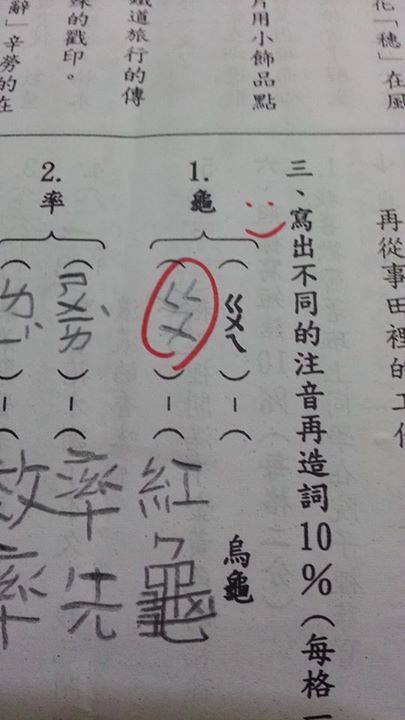 化「穗」在風
片用小飾品點
鐵道旅行的傳
殊的戳印。
辭」辛勞的在
再從事田裡的工作
三、寫出不同的注音再造詞10%(每格一
1.龜
(ㄍㄨㄟ)-(烏龜
(ㄍㄨ)-(紅龜
2.率
(ㄕㄨㄞˋ)-(率先
( )-(效率